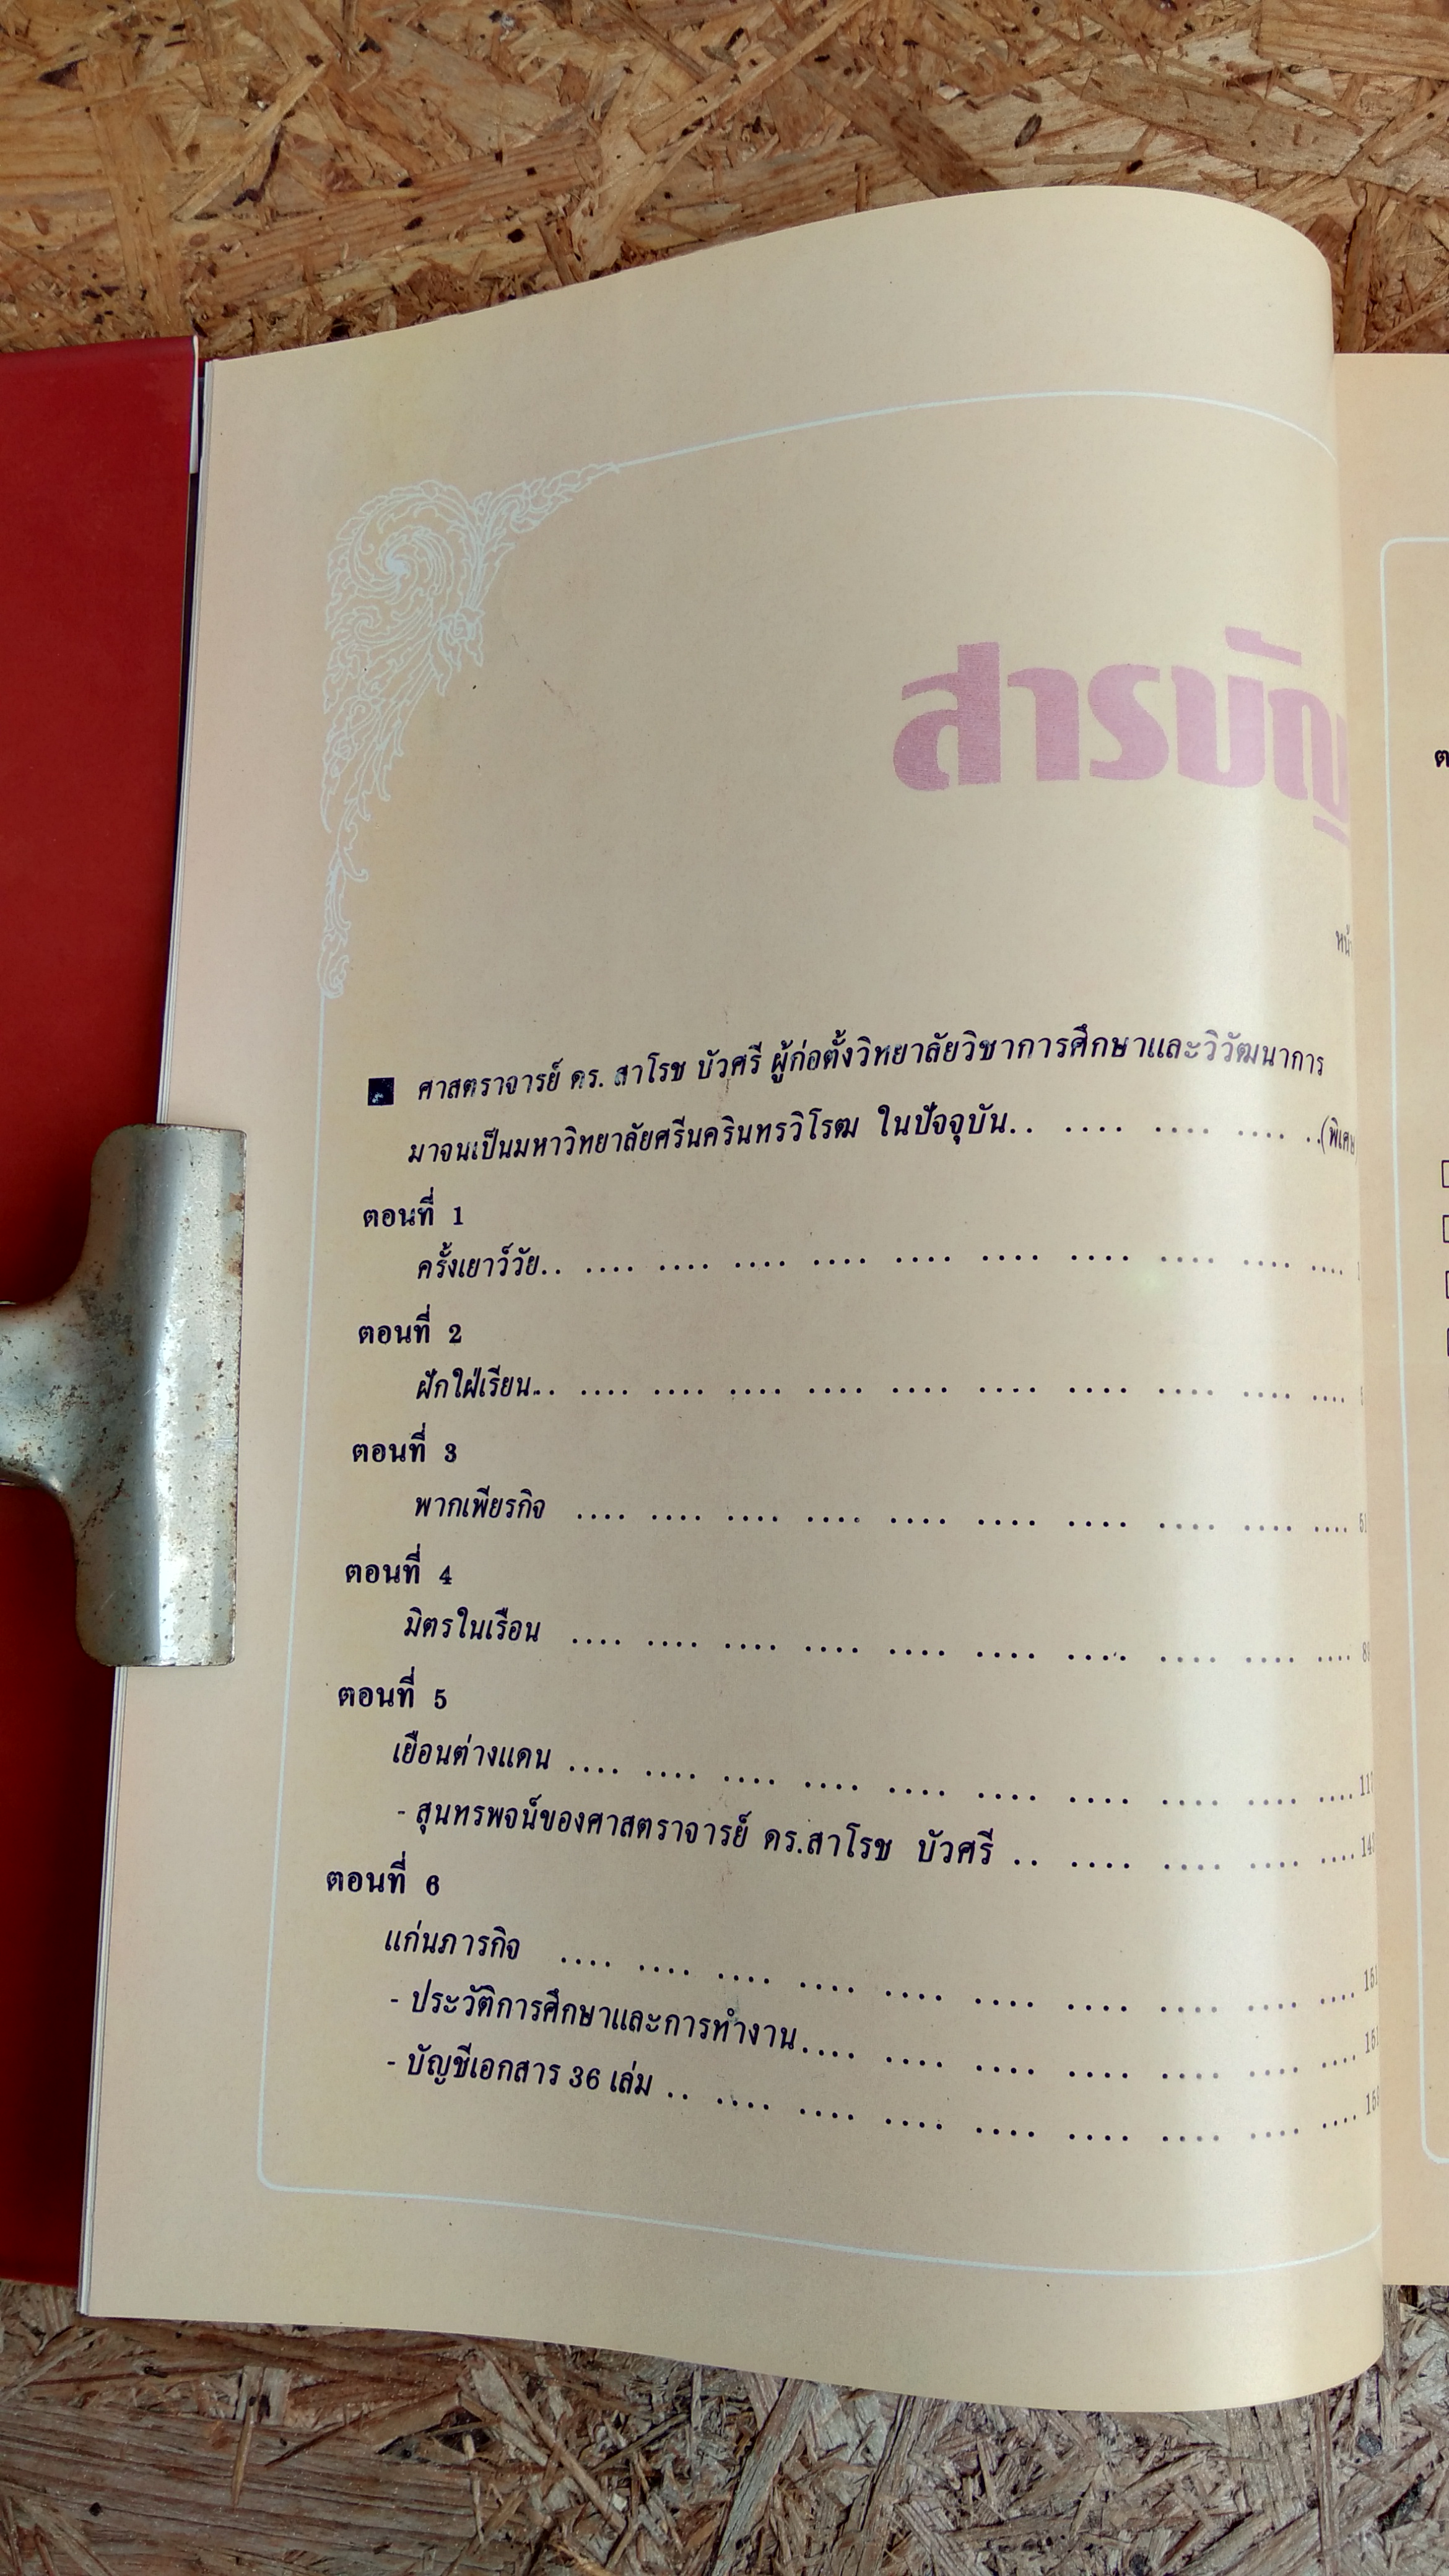 สารบัญ
ศาสตราจารย์ ดร. สาโรช บัวศรี ผู้ก่อตั้งวิทยาลัยวิชาการศึกษาและวิวัฒนาการ
มาจนเป็นมหาวิทยาลัยศรีนครินทรวิโรฒ ในปัจจุบัน.. .... .... .... ..(พิเศษ
ตอนที่ 1
ครั้งเยาว์วัย.. .... .... .... .... .... .... .... .... .... ....
ตอนที่ 2
ฝักใฝ่เรียน... .... .... .... .... .... .... .... .... .... ....
ตอนที่ 3
พากเพียรกิจ .... .... .... .... .... .... .... .... .... ....
ตอนที่ 4
มิตรในเรือน .... .... .... .... .... .... .... .... .... ....
ตอนที่ 5
เยือนต่างแดน .... .... .... .... .... .... .... .... .... ....
- สุนทรพจน์ของศาสตราจารย์ ดร.สาโรช บัวศรี .. .... .... .... ....
ตอนที่ 6
แก่นภารกิจ .... .... .... .... .... .... .... .... .... ....
- ประวัติการศึกษาและการทำงาน.... .... .... .... .... .... ....
- บัญชีเอกสาร 36 เล่ม .. .... .... .... .... .... .... .... ....